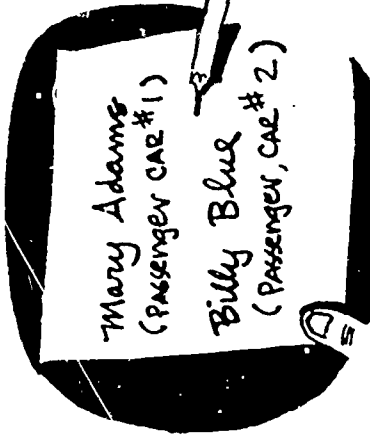 Mary Adams
(Passenger CAR #1)
Billy Blue
(Passenger, CAR #2)